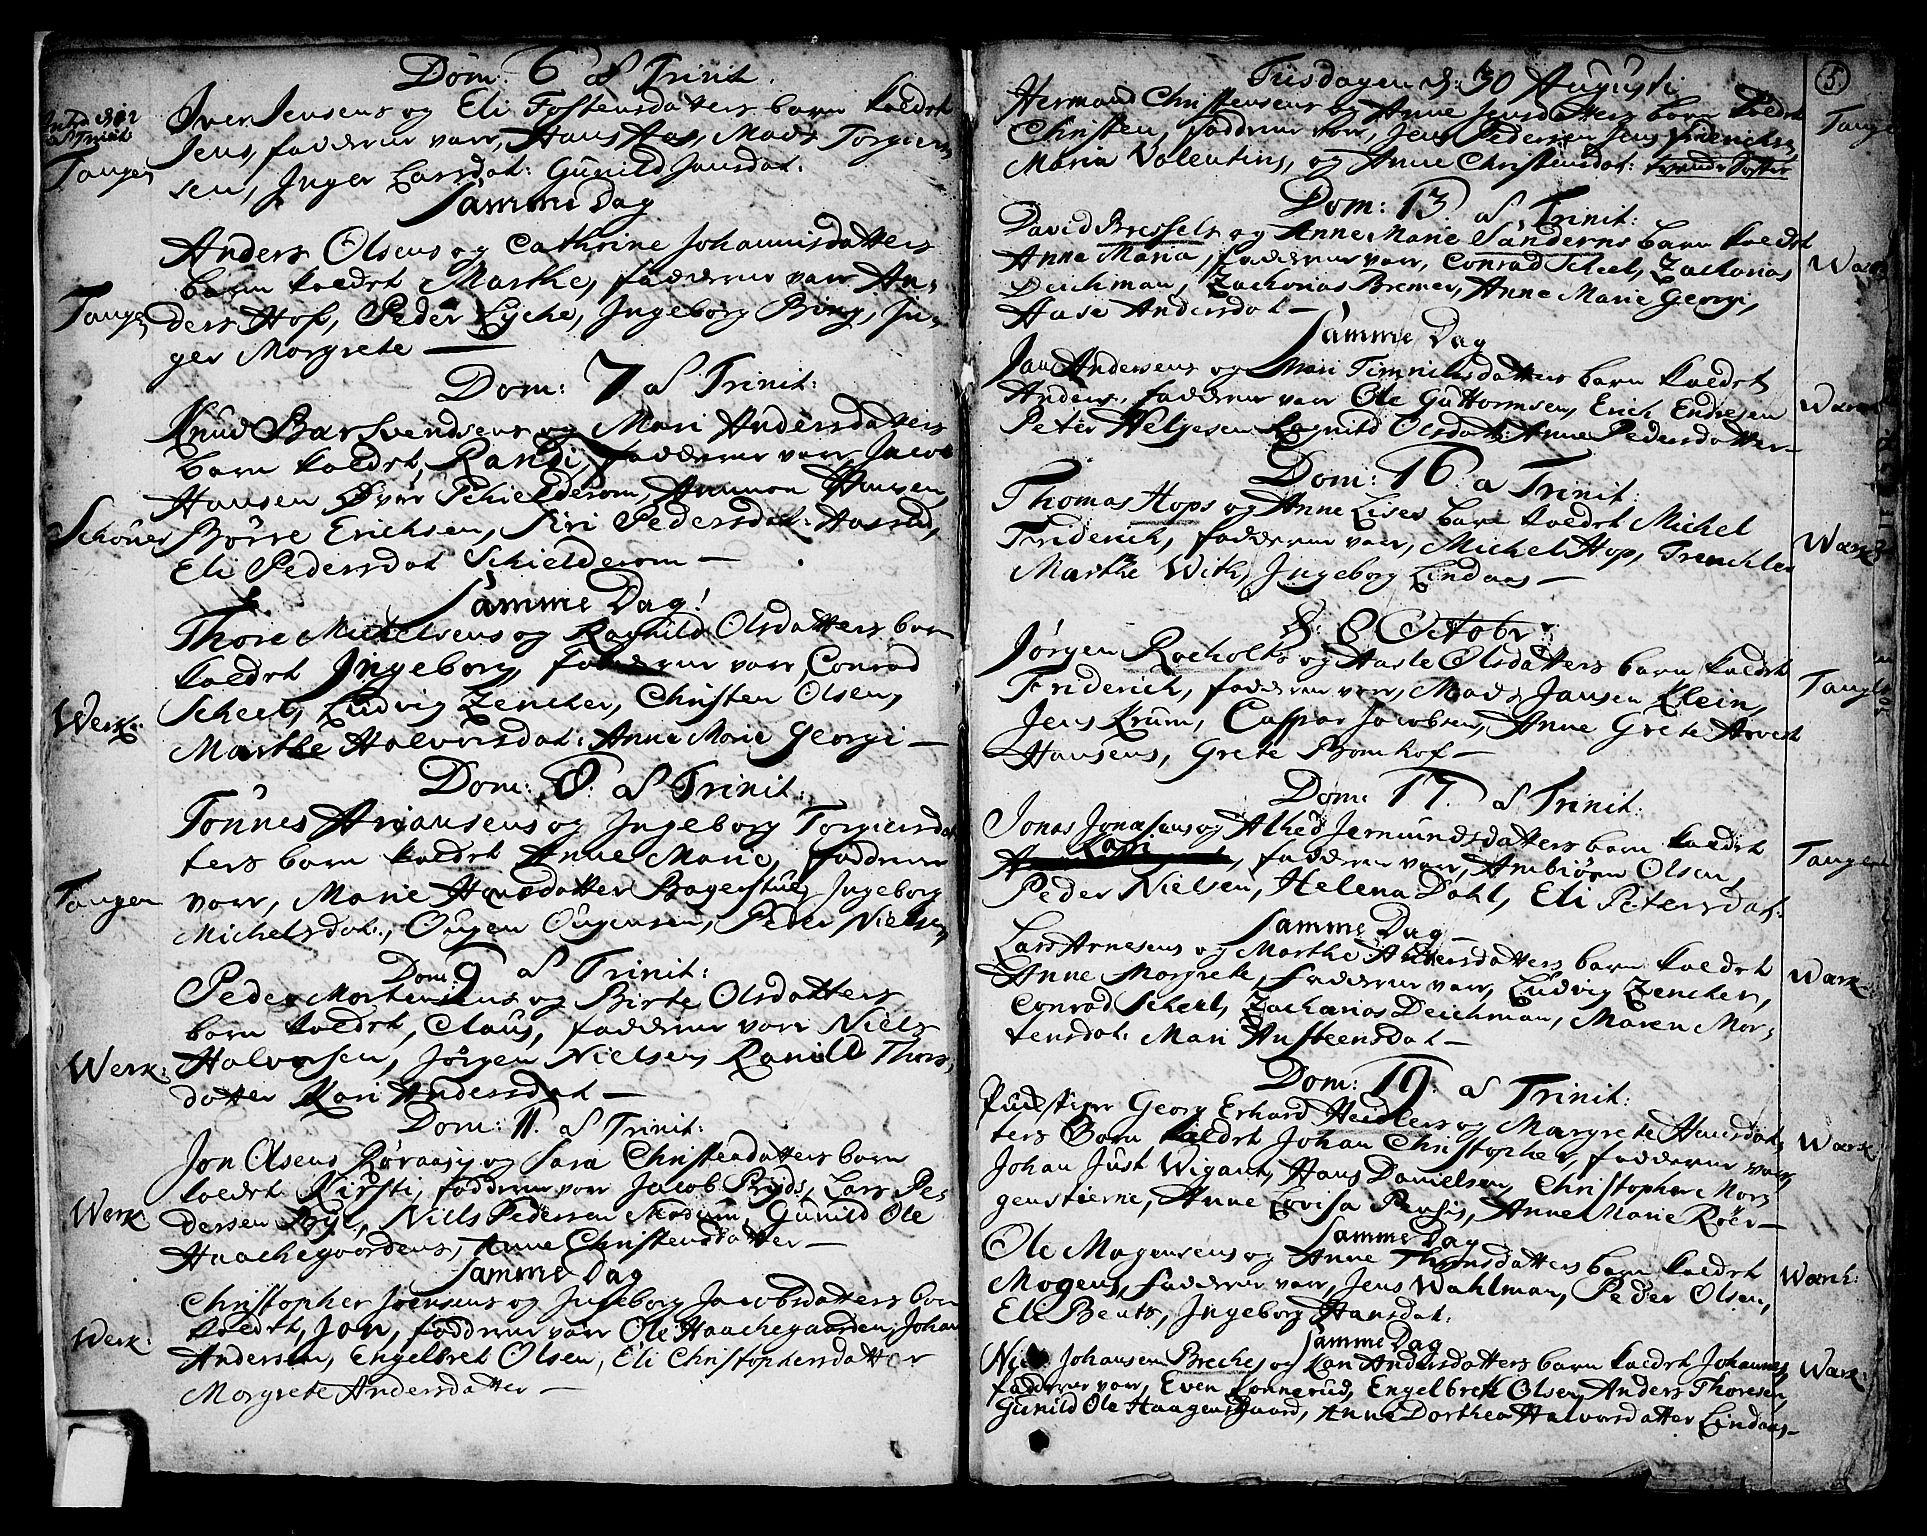 Dom: 6 af Trinit:
Tangen
Iver Jensens og Eli Tostensdatters barn kaldet
Jens, fadderne varr, Hans Has, Mads Torgier-
sen, Inger Larsdat: Gunild Jansdat:
Samme Dag
Anders Olsens og Cathrine Johannisdatters
barn kaldet Marthe, fadderne varr An-
Tangen
ders Hof, Peder Lyche, Ingeborg Bing, In-
ger Morgrete —
Dom: 7 af Trinit:
Knud Barsvendsens og Mari Andersdatters
barn kaldet Randi, fadderne varr Jacob
Hansen Øvre Schielderom, Ammon Hansen,
Børre Erichsen, Siri Pedersdat: Hassel,
Eli Pedersdat Schielderom —
Samme Dag!
Thore Michelsens og Ragnild Olsdatters barn
kaldet Ingeborg, fadderne varr, Conrad
Werk:
Scheel, Ludvig Zencker, Christen Olsen,
Marthe Halvorsdat: Anne Marie Georgi —
Dom: 8. af Trinit:
Tønnes Ariansens og Ingeborg Torgiersdat
ters barn kaldet Anne Marie, fadderne
Tangen
varr, Marie Hansdatter Bagerstue, Ingeborg
Michelsdat:, Ougen Ougensen, Peder Nielsen
Dom: 9 af Trinit:
Peder Mortensens og Birte Olsdatters
barn kaldet, Claus, fadderne varr Niels
Werk:
Halvorsen, Jørgen Nielsen, Ranild Thors-
datter Kari Andersdat —
Dom: 11. af Trinit:
Jon Olsens Røraasj og Sara Christensdatters barn
kaldet Kirsti, fadderne varr Jacob Pryds, Lars Pe-
Werk
dersen Bye, Niels Pedersen Modum, Gunild Ole
Haachegaardens, Anne Christensdatter —
Samme Dag
Christopher Joensens og Ingeborg Jacobsdatters barn
Werk:
kaldet, Jon, fadderne varr Ole Haachegaarden, Johan
Andersen, Engelbret Olsen, Eli Christophersdatter
Morgrete Andersdatter —
5.
Tiisdagen d: 30 Augusti
Hermand Christensens og Anne Jensdatters barn kaldet
Tangen
Christen, fadderne varr, Jens Pedersen Jens Friderichsen,
Maria Valentins, og Anne Christensdat:
Dom: 13. af Trinit:
David Bressels og Anne Marie Sanderns barn kaldet
Anna Maria, fadderne varr, Conrad Scheel, Zacharias
Deichman, Zacharias Bremer, Anne Marie Georgi,
Aase Andersdat —
Samme Dag
Jan Andersens og Mari Timnilsdatters barn kaldet
Anders, fadderne varr Ole Guttormsen, Erich Endresen
Peter Helgesen Ragnild Olsdat: Anne Pedersdatter —
Dom: 16. a Trinit:
Thomas Hops og Anne Lises barn kaldet Michel
Friderich, fadderne varr, Michel Hop, Trenchler
Wærk
Marthe With, Ingeborg Lindaas —
d: 8 Octobr:
Jørgen Rocholts og Aasle Olsdatters barn kaldet
Friderich, fadderne varr, Mads Jansen Klein,
Jens Krum, Caspar Jacobsen, Anne Grete Arvedt
Hansens, Grete Bomhof —
Dom: 17. af Trinit:
Jonas Jonasens og Alhed Jermundsdatters barn kaldet
Kari, fadderne varr, Ambiørn Olsen,
Tangen
Peder Nielsen, Helena Dahl, Eli Petersdat:
Samme Dag —
Lars Arnesens og Marthe Andersdatters barn kaldet
Anne Morgrete, fadderne varr, Ludvig Zencher,
Wærk
Conrad Scheel, Zacharias Deichman, Maren Mor-
tensdat: Mari Austeensdat —
Dom: 19. af Trinit:
Pucstiger Georg Erhard Heidlers og Margrete Hansdat
ters Barn kaldet Johan Christopher, fadderne varr
Wærk
Johan Just Wigant, Hans Danielsen, Christopher Mor-
genstierne, Anne Lovisa Pensis, Anne Marie Røer —
Samme Dag
Ole Mogensens og Anne Thorsdatters barn kaldet
Mogens, fadderne varr, Jens Wahlman, Peder Olsen,
Wærk:
Eli Bents, Ingeborg Hansdat:
Samme Dag
Johansen Breches og Kari Andersdatters barn kaldet Johannes
Wærk:
fadderne varr, Even Konnerud, Engelbret Olsen, Anders Thoresen,
Gunild Ole Haagensgaard, Anne Dorthea Halvorsdatter Lindaas —